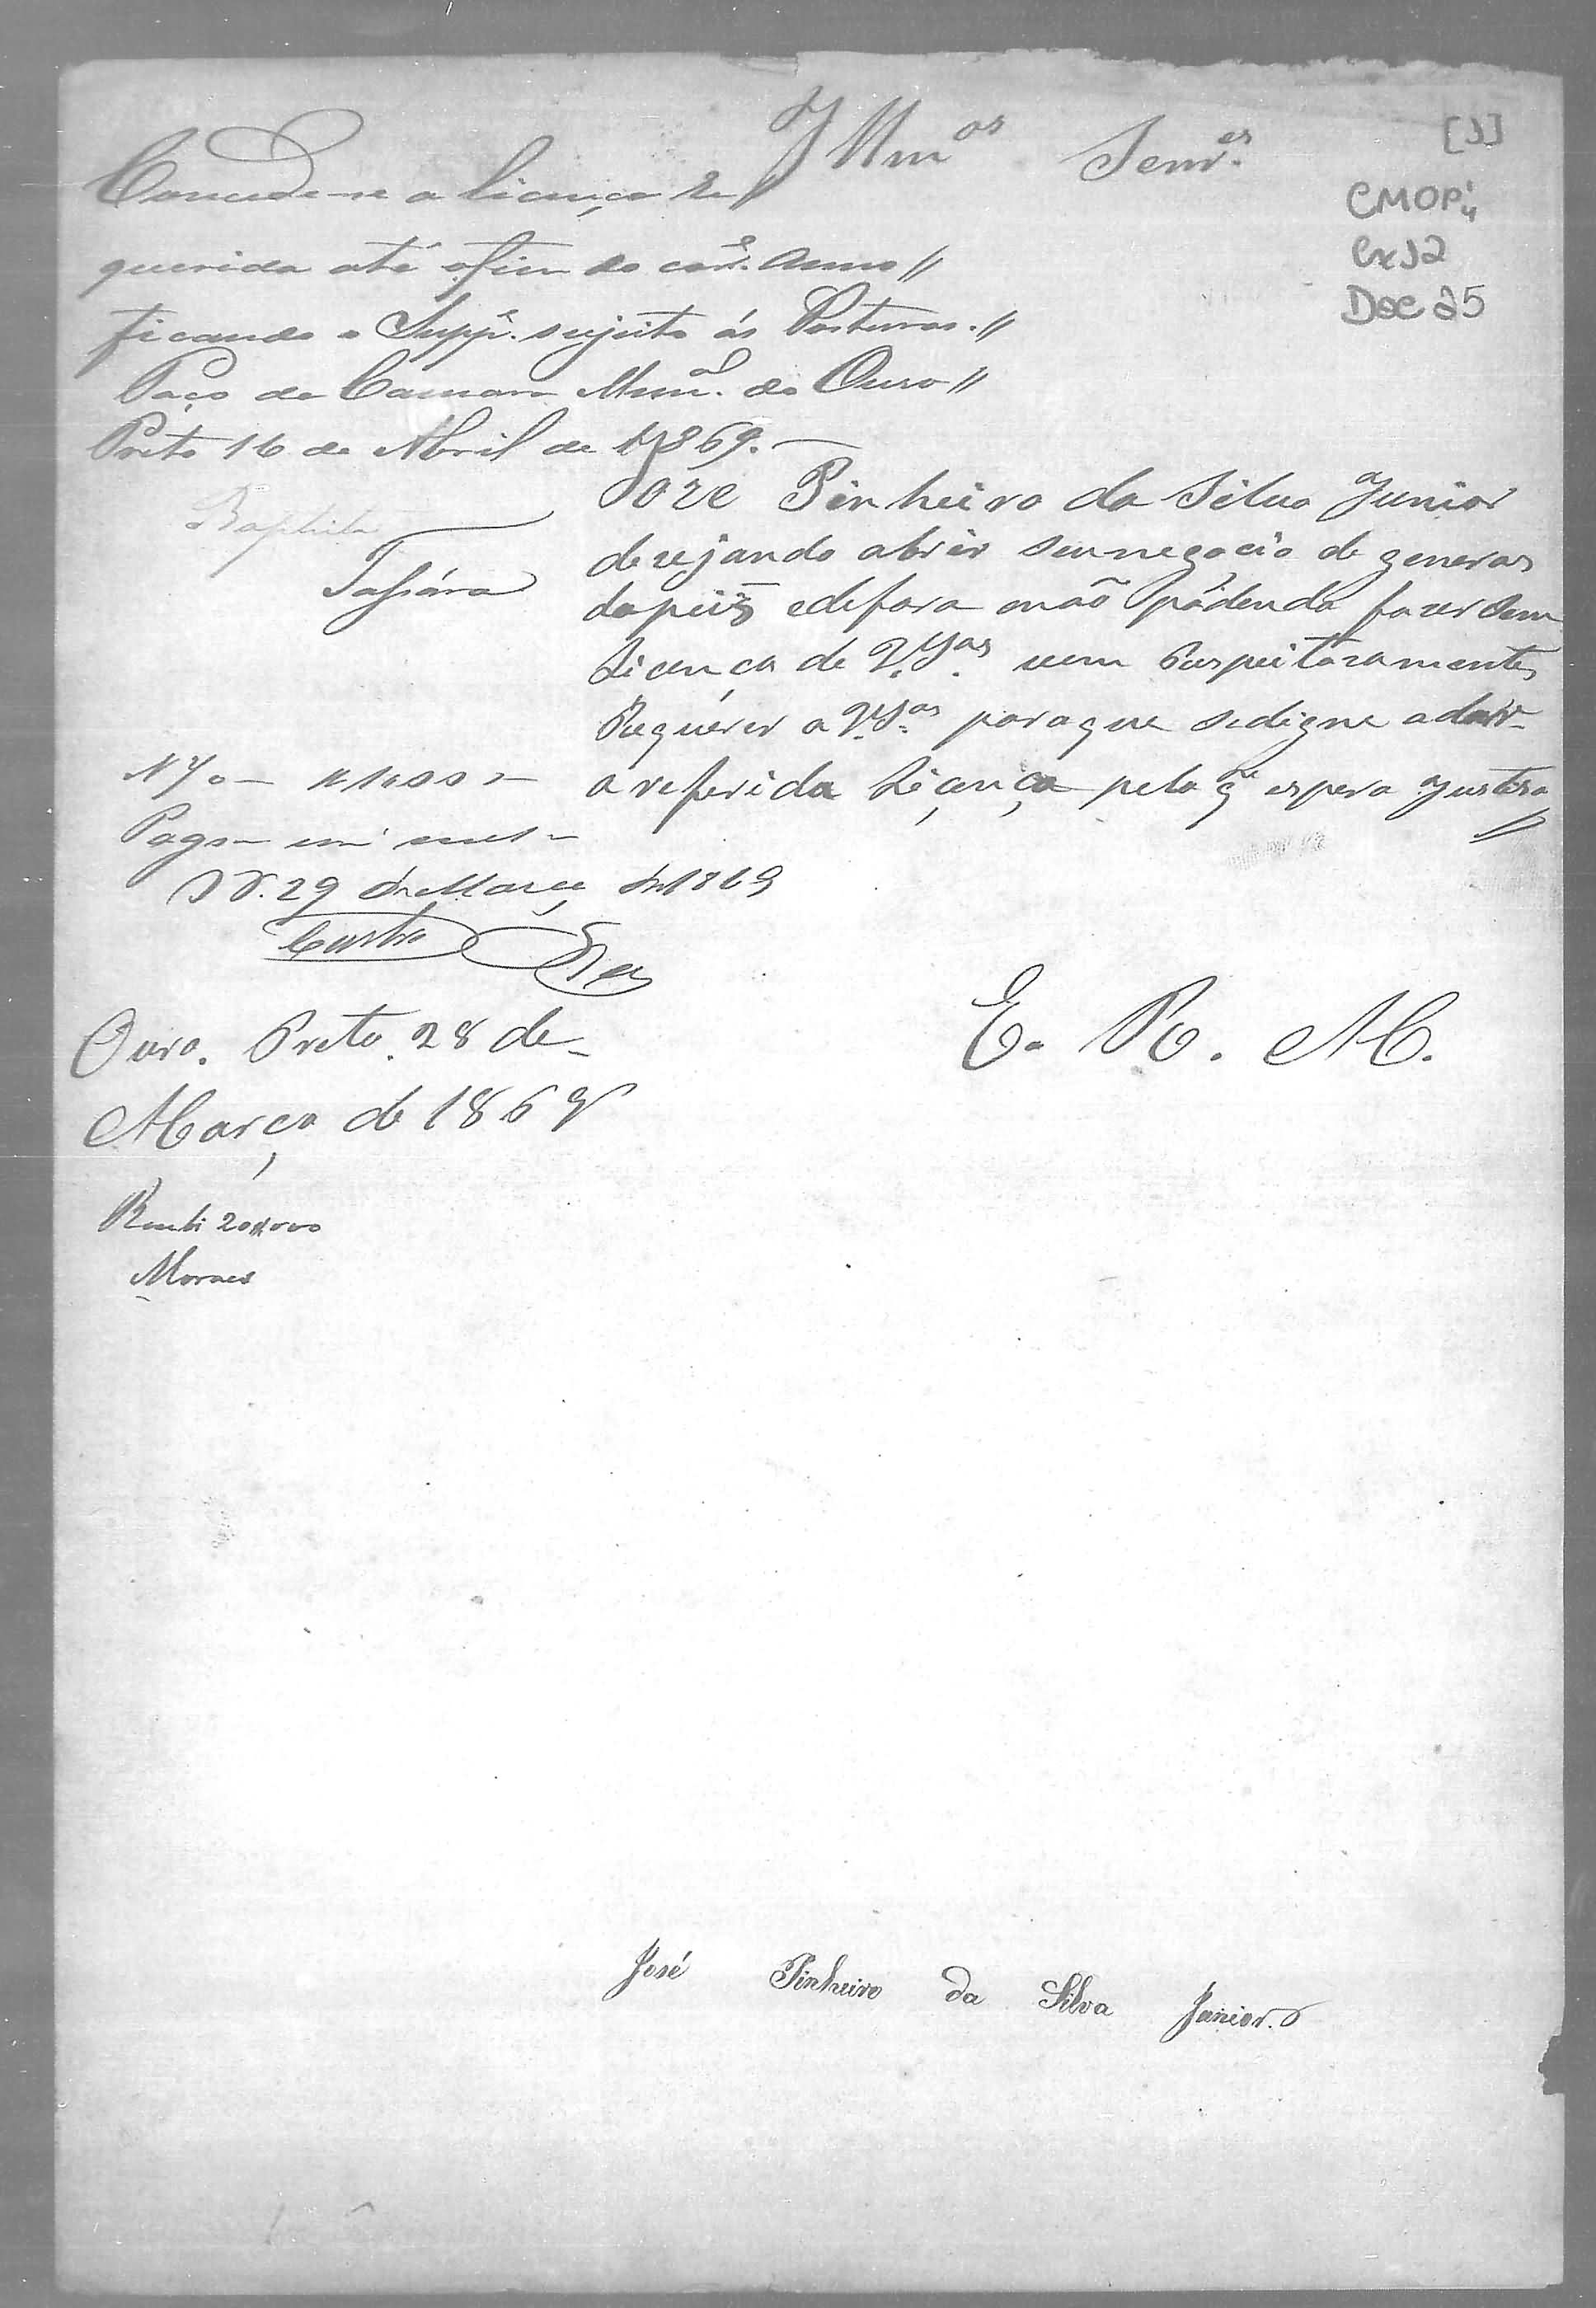 [1]
CMOP¹4
Cx12
Doc 25
Illmos Senres.
Concede-se a licença re
querida até o fim do corre. anno //
ficando o Suppe. sujeito ás Posturas. //
Paço da Camara Munal. do Ouro //
Preto 16 de Abril de 1869.
Baptista
José Pinheiro da Silva Junior
dezejando abrir seu negocio de generos
dopeiiz edefora enão pódendo fazer Sem
Licença de V.Sas. vem Respeitozamente
Requérer a V.Sas. paraque sedigne adar
a referida Liçença pelo q' espera Justiza //
Nº
Pago um mes
29 de Março de 1869
Castro
Ouro. Preto. 28 de
Março de 1869
E. R. M.
Recebi 20$000
Moraes
José Pinheiro da Silva Junior.